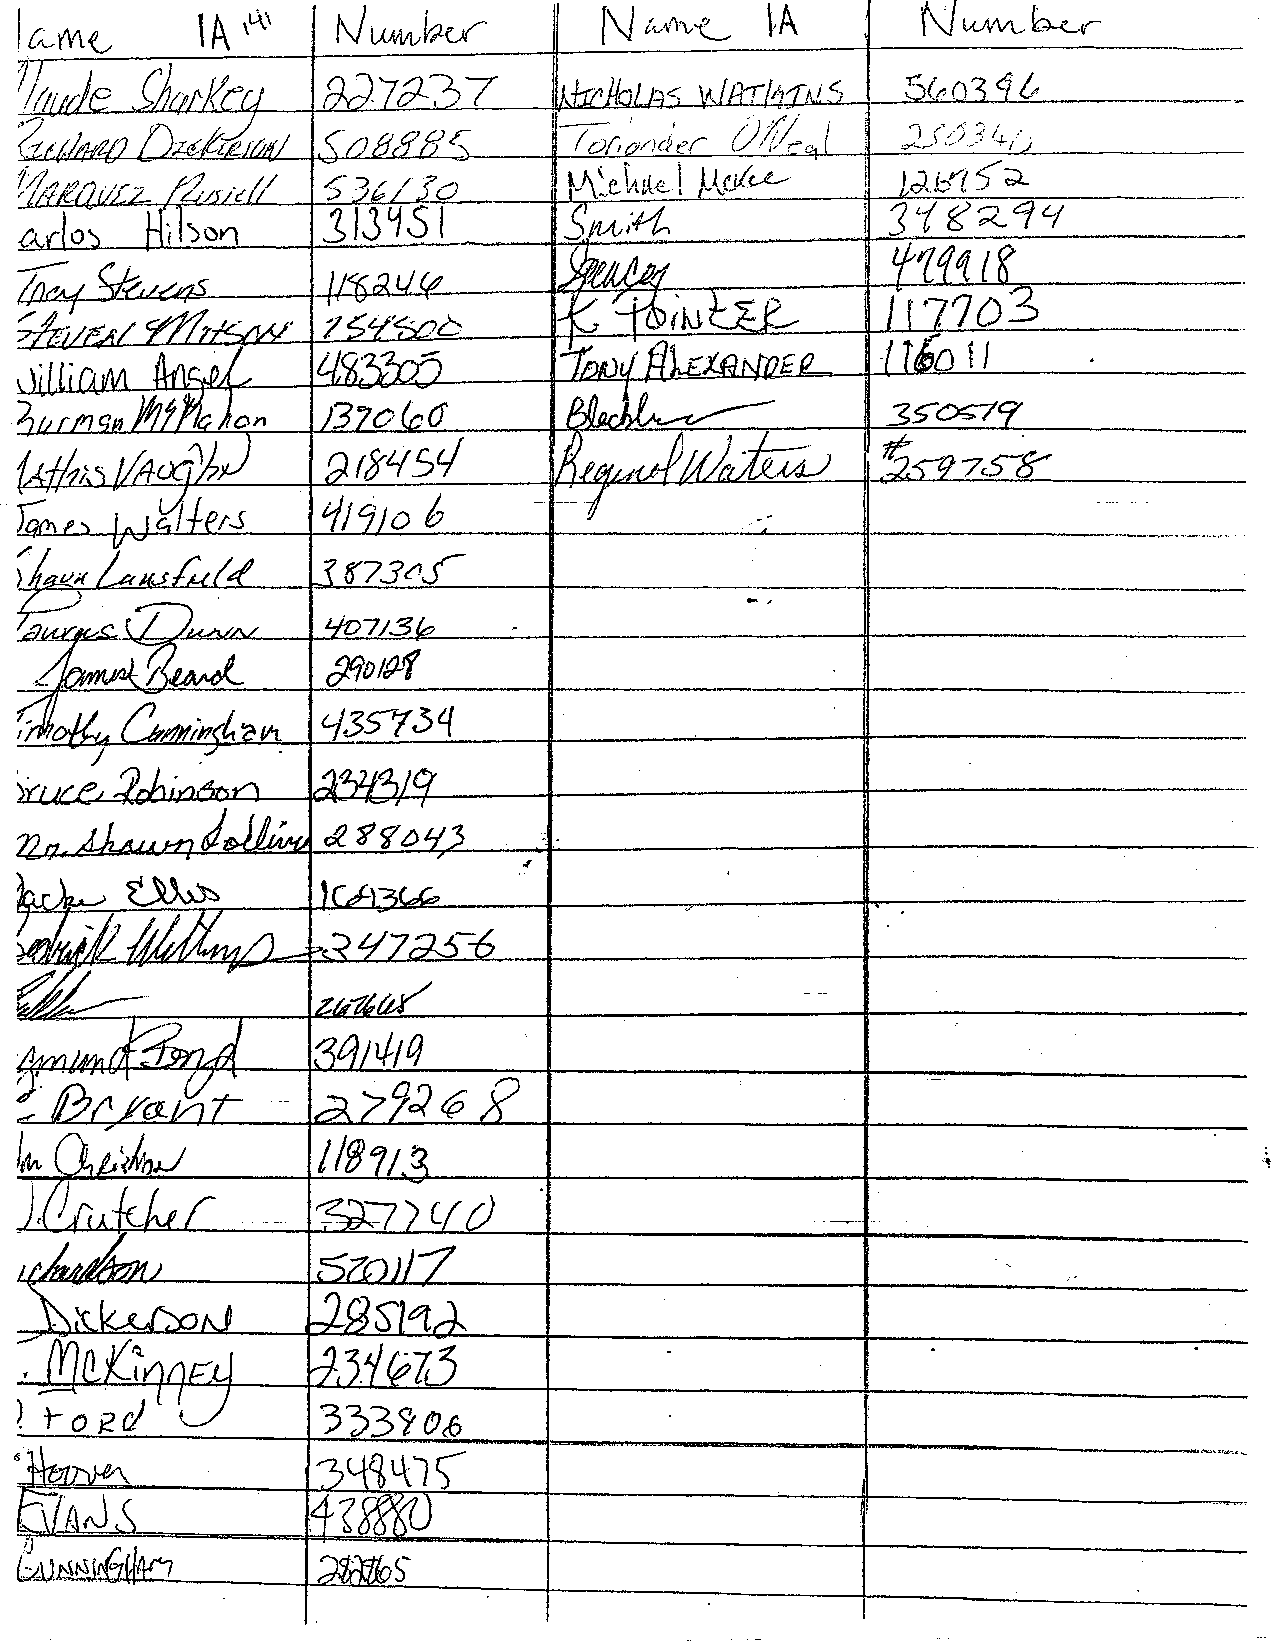 Name 1A Number Name 1A Number
Claude Sharkey 227237 NICHOLAS WATKINS 560396
RICHARD DICKERSON 508885 Toriander O'Neal 250340
MARQUEZ Russell 536130 Michael McKee 126952
arlos Hilson 313451 Smith 348294
Troy Stevens 118246 Spencer 479918
STEVEN 254500 K POINTER 117703
William Angel 483305 TONY ALEXANDER 116011
Thurman McMahon 139060 350519
Mathis VAUGHN 218454 Reginol Waters #259758
James Walters 419106
Shaun Lansfield 387305
Taurus Dunn 407136
James Beard 290128
Timothy Cunningham 435734
Bruce Robinson 234319
Mr. Shawn 288043
Ellis
347256

Bond 391419
Bryant 279268
118913
J. Crutcher 327740
ichardson 520117
Dickerson 285192
McKinney 234673
Ford 333806
Hoover 348475
EVANS 438880
CUNNINGHAM